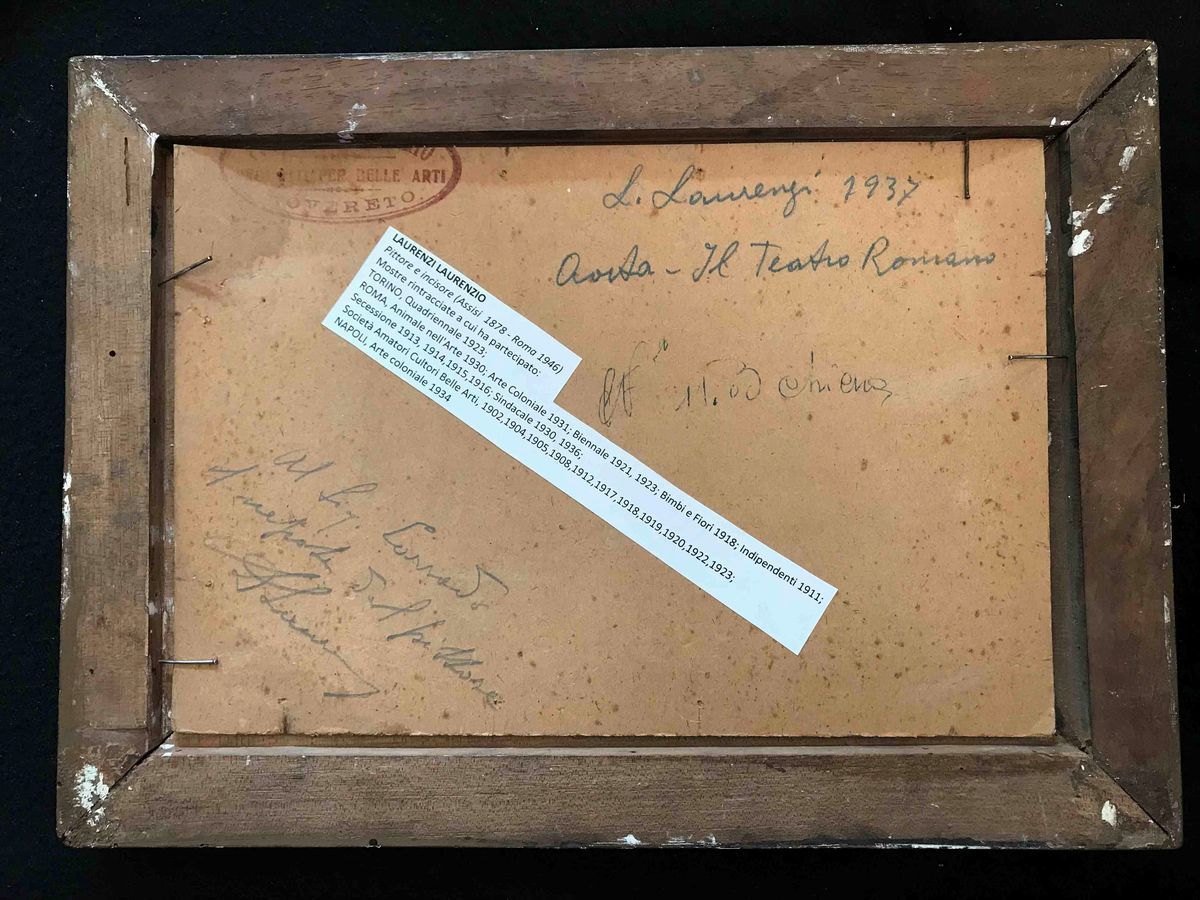 PER BELLE ARTI
OVERETO.
L. Laurenzi 1937
Aosta - Il Teatro Romano
LAURENZI LAURENZIO
Pittore e incisore (Assisi 1878 - Roma 1946)
Mostre rintracciate a cui ha partecipato:
TORINO, Quadriennale 1923;
ROMA, Animale nell'Arte 1930; Arte Coloniale 1931; Biennale 1921, 1923; Bimbi e Fiori 1918; Indipendenti 1911;
Secessione 1913, 1914,1915,1916; Sindacale 1930, 1936;
Società Amatori Cultori Belle Arti, 1902,1904,1905,1908,1912,1917,1918,1919,1920,1922,1923;
NAPOLI, Arte coloniale 1934
Al Sig. Corrado
Il nepote del pittore